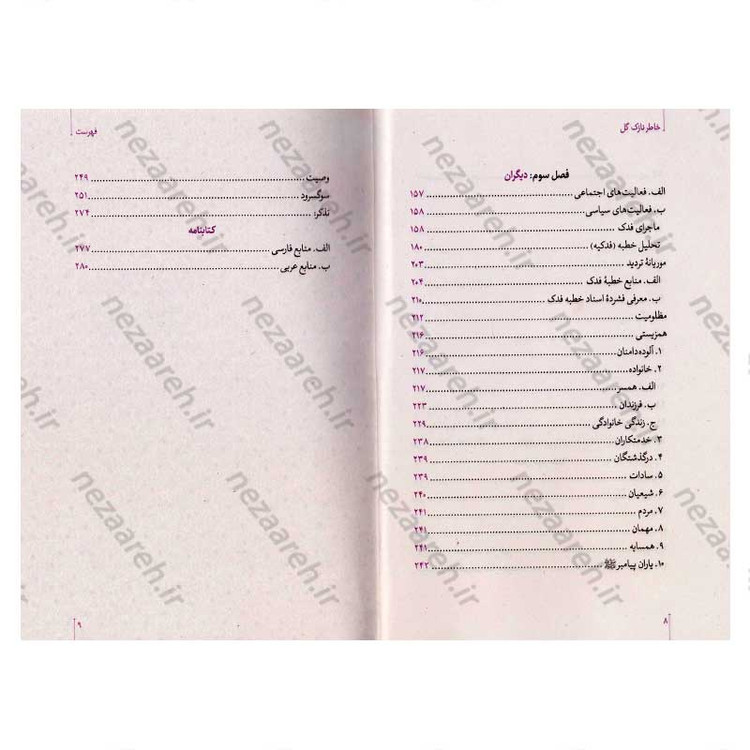 خاطر نازک گل
فصل سوم: دیگران
الف. فعالیت‌های اجتماعی ۱۵۷
ب. فعالیت‌های سیاسی ۱۵۸
ماجرای فدک ۱۵۸
تحلیل خطبه (فدکیه) ۱۸۰
موریانهٔ تردید ۲۰۳
الف. منابع خطبهٔ فدک ۲۰۴
ب. معرفی فشردهٔ اسناد خطبه فدک ۲۱۰
مظلومیت ۲۱۲
همزیستی ۲۱۶
۱. آلوده‌دامنان ۲۱۶
۲. خانواده ۲۱۷
الف. همسر ۲۱۷
ب. فرزندان ۲۲۳
ج. زندگی خانوادگی ۲۲۹
۳. خدمتکاران ۲۳۸
۴. درگذشتگان ۲۳۹
۵. سادات ۲۳۹
۶. شیعیان ۲۴۰
۷. مردم ۲۴۱
۸. مهمان ۲۴۱
۹. همسایه ۲۴۱
۱۰. یاران پیامبر ﷺ ۲۴۲
۸
فهرست
وصیت ۲۴۹
سوگسرود ۲۵۱
تذکر: ۲۷۴
کتابنامه
الف. منابع فارسی ۲۷۷
ب. منابع عربی ۲۸۰
۹
nezaareh.ir